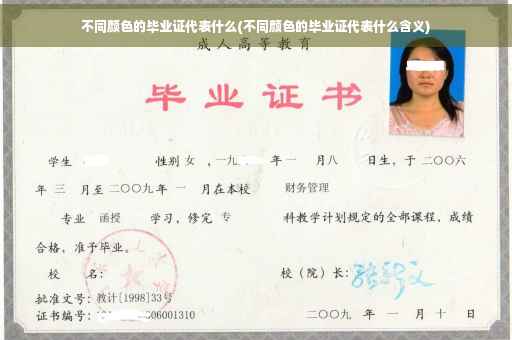 不同颜色的毕业证代表什么(不同颜色的毕业证代表什么含义)
成人高等教育
毕业证书
学生 性别 女 ，一九 年 一 月 八 日生，于 二〇〇六
年 三 月至 二〇〇九 年 一 月在本校 财务管理
专业 函授 学习，修完 专 科教学计划规定的全部课程，成绩
合格，准予毕业。
校 名： 校（院）长：
批准文号：教计[1998]33号
证书编号： 06001310 二〇〇九 年 一 月 十 日